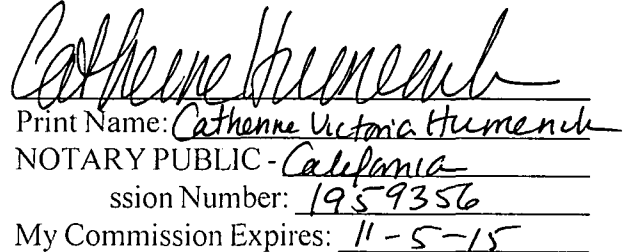 Catherine Humenik
Print Name: Catherine Victoria Humenik
NOTARY PUBLIC - California
ssion Number: 1959356
My Commission Expires: 11-5-15